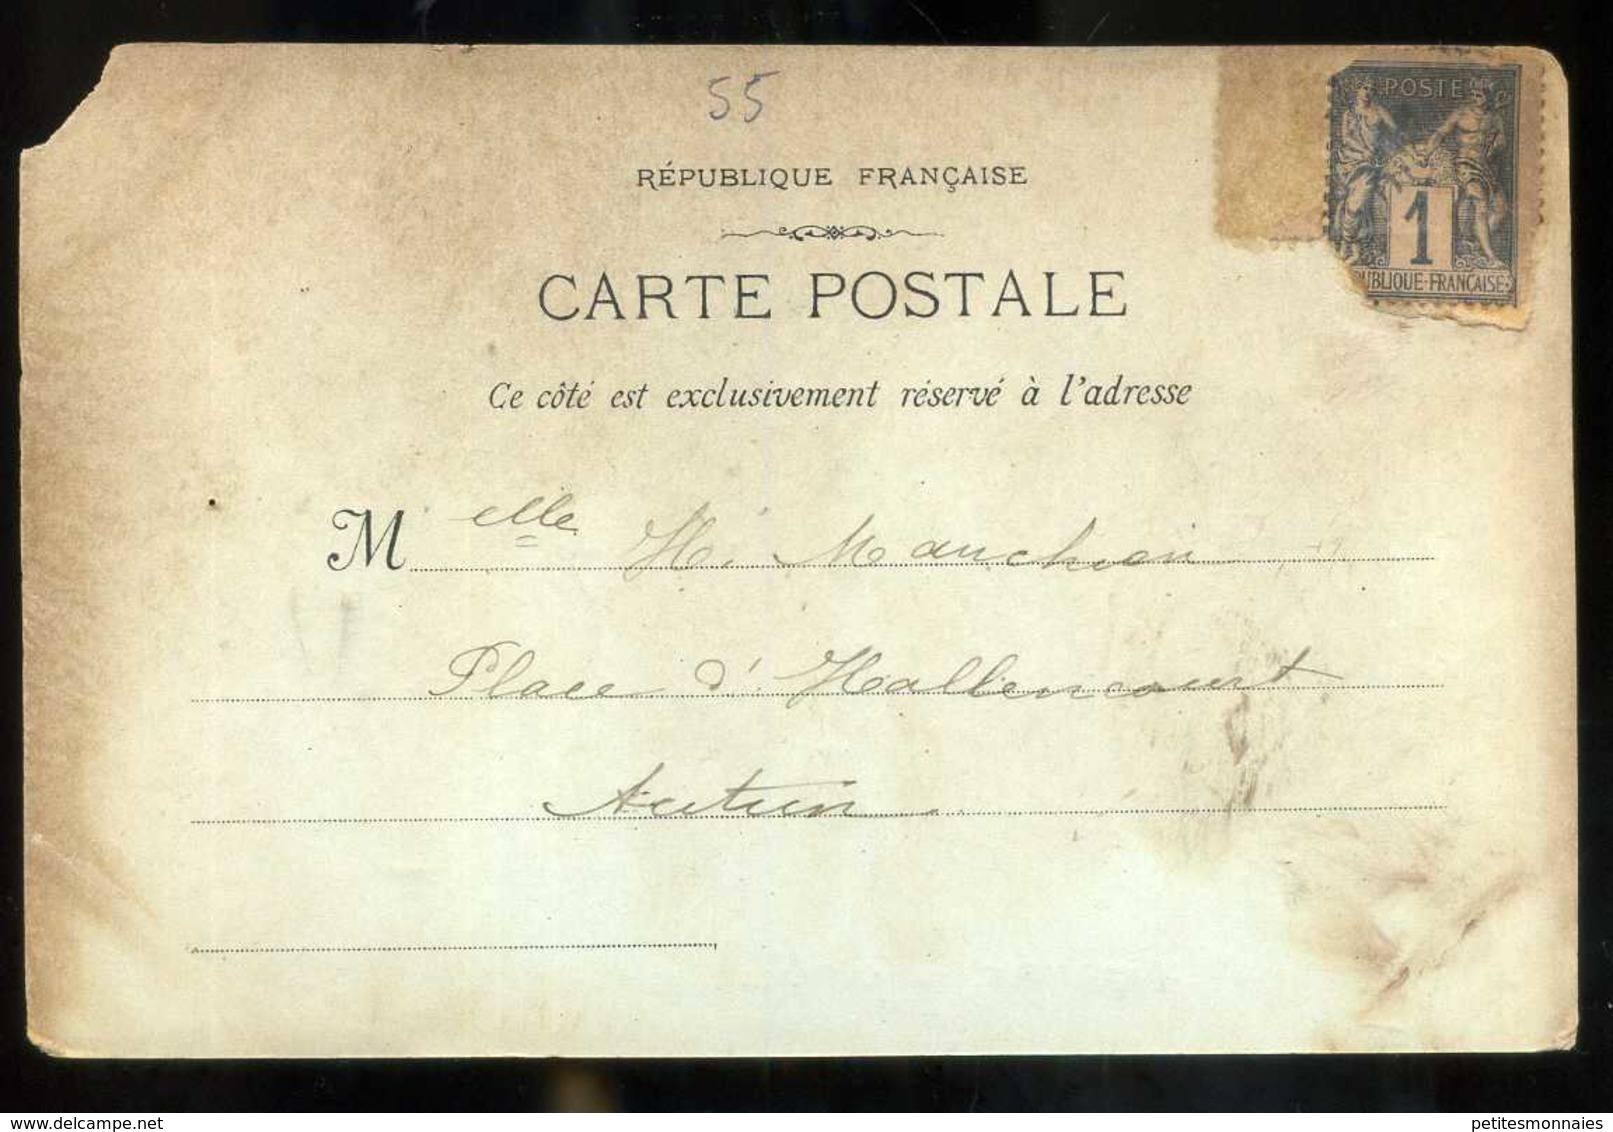 55
POSTE
1
PUBLIQUE-FRANÇAISE
RÉPUBLIQUE FRANÇAISE
CARTE POSTALE
Ce côté est exclusivement réservé à l'adresse
Melle H. Manchion
Place d'Hallencourt
Autun
petitesmonnaies